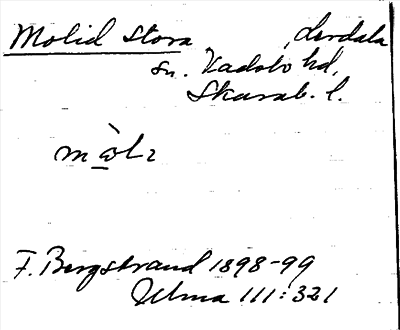 Molid Stora Lerdala
sn. Kadsbo hd,
Skarab. l.
mòlı
F. Bergstrand 1898-99
Ulma 111:321